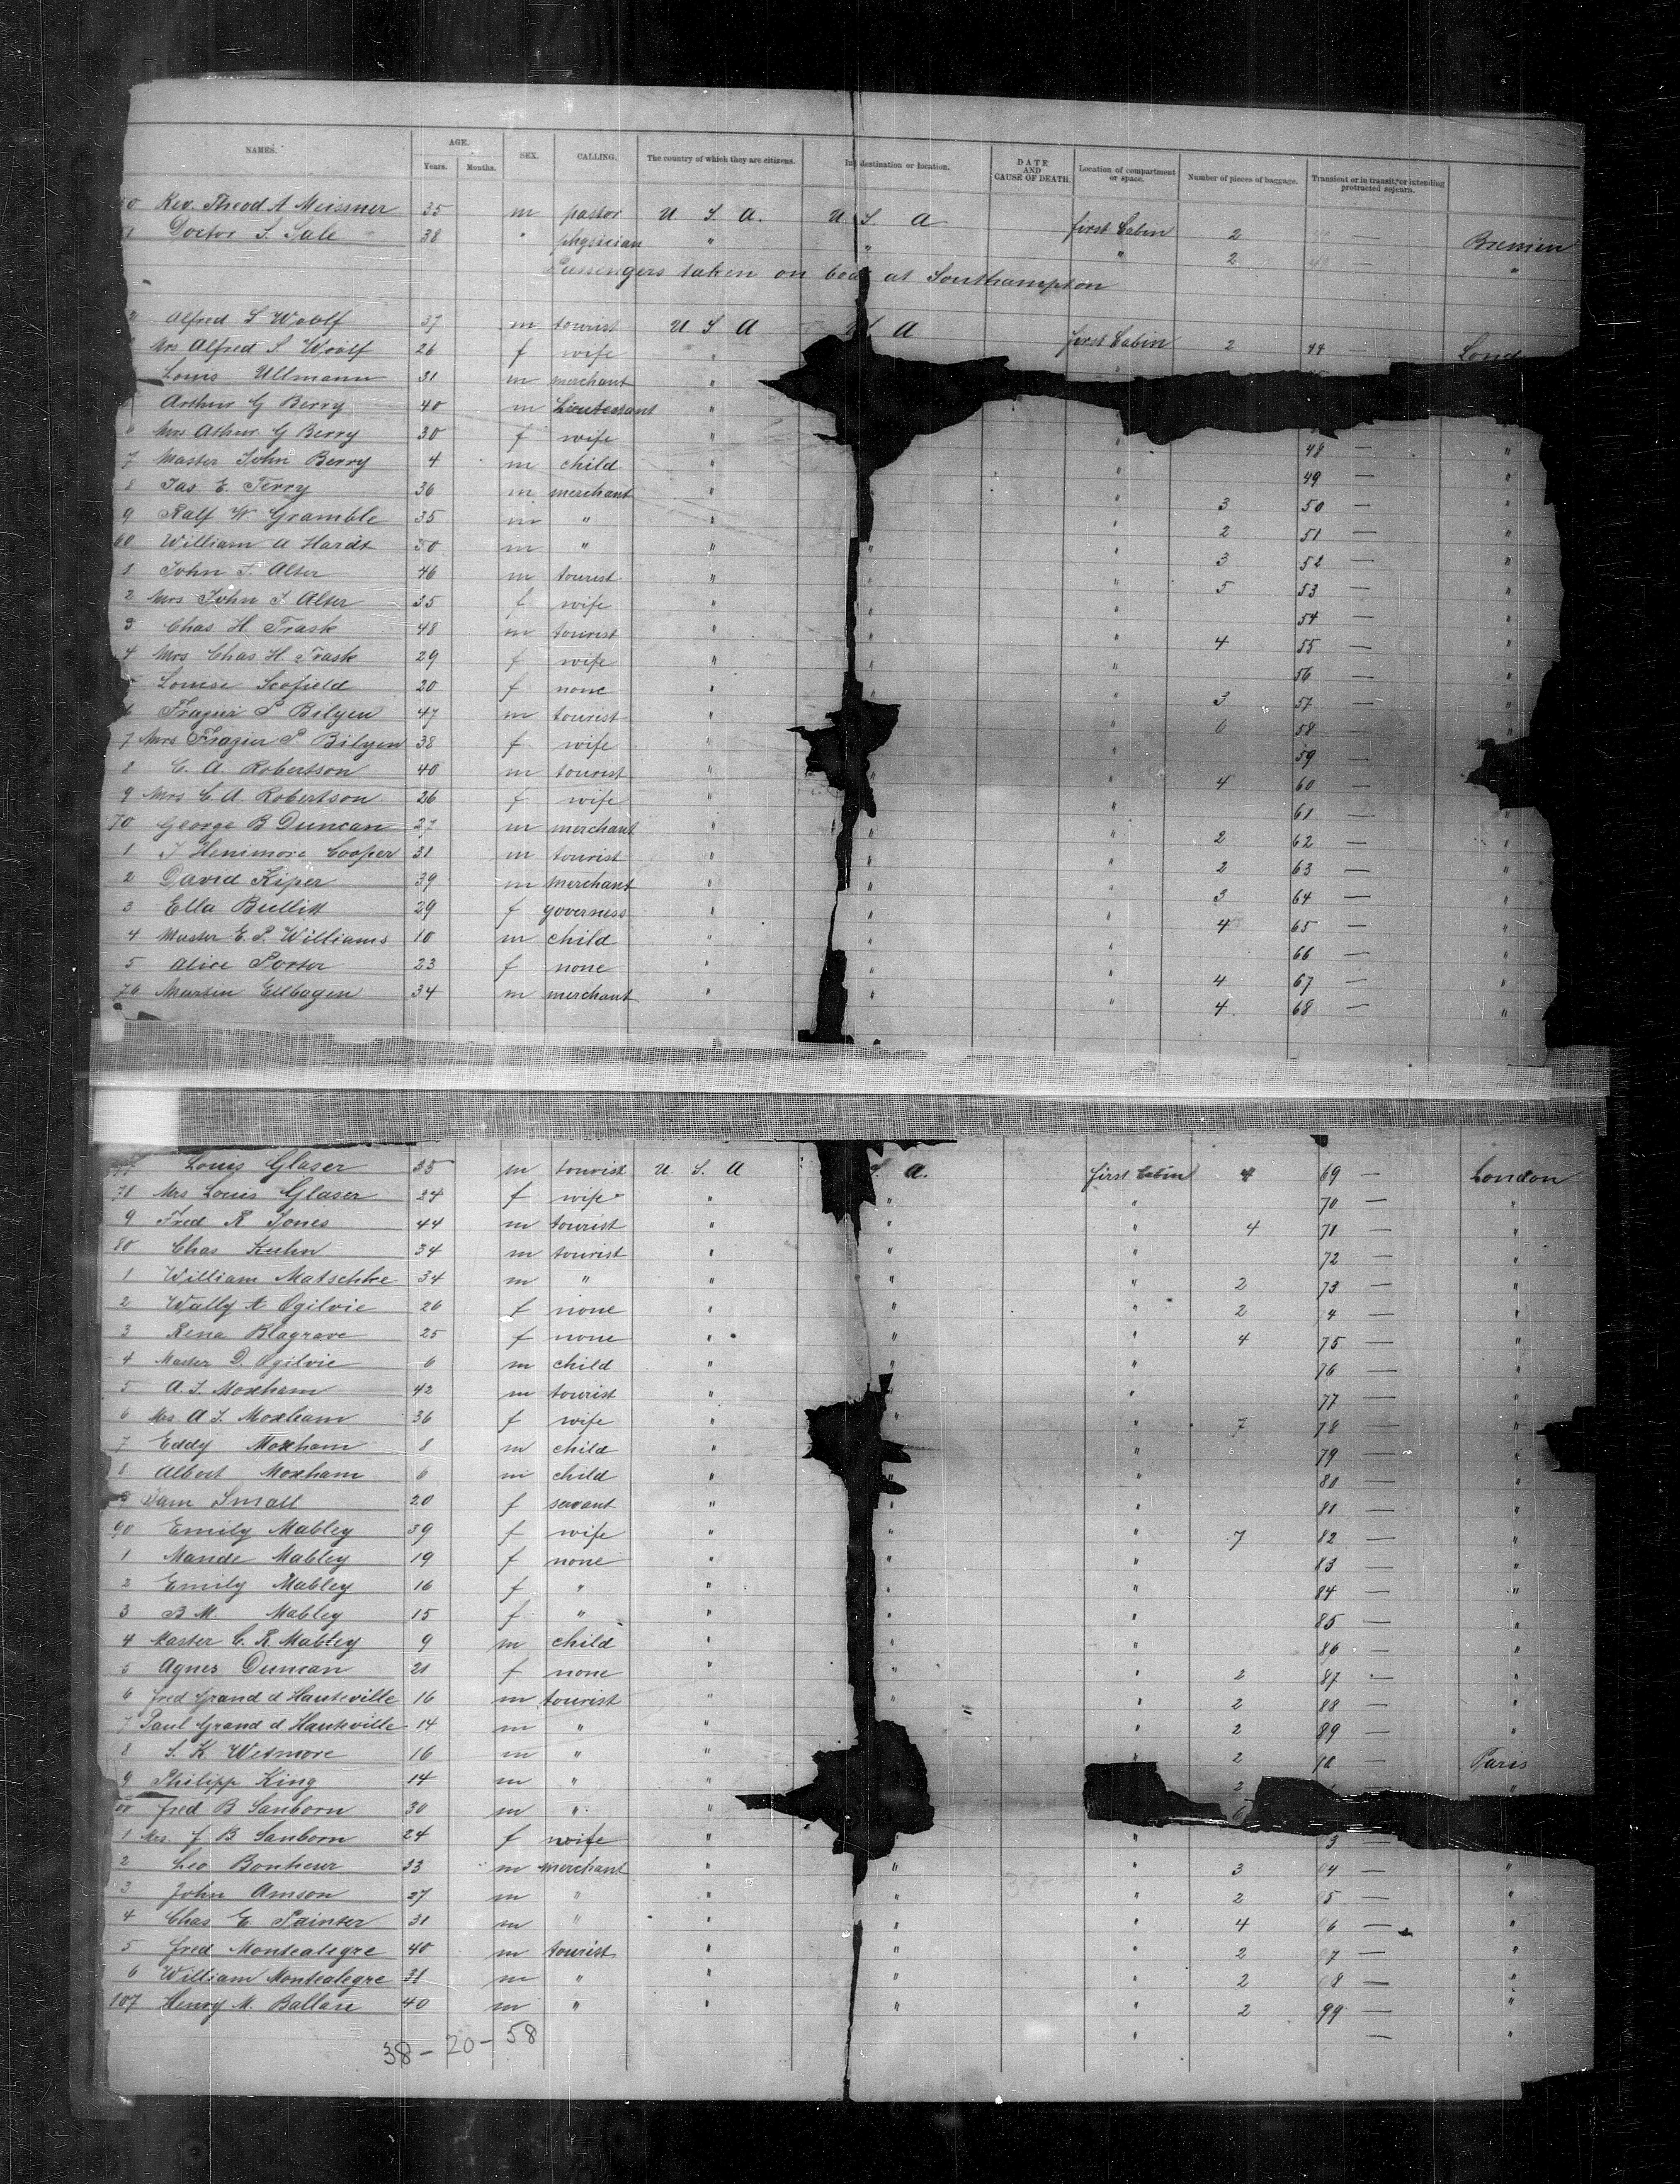 NAMES. AGE. SEX. CALLING. The country of which they are citizens. destination or location. DATE AND CAUSE OF DEATH. Location of compartment or space. Number of pieces of baggage. Transient or in transit, or intending protracted sojourn.
Years. Months.
50 Rev. Theod A Meissner 35 m pastor U S A. U S A first Cabin 2 — Bremen
1 Doctor S. Sale 38 " physician " " " 2 — "
Passengers taken on at Southampton
Alfred S Woolf 37 m tourist U S A A first Cabin 2 44 — Lond
Mrs Alfred S Woolf 26 f wife "
Louis Ullmann 31 m merchant "
Arthur G Berry 40 m Lieutenant "
" Mrs Athur G Berry 30 f wife " " 48 — "
7 Master John Berry 4 m child " " 49 — "
8 Jas E. Terry 36 m merchant " " 3 50 — "
9 Ralf W. Gramble 35 m " " " 2 51 — "
60 William A Hardt 50 m " " " " 3 52 — "
1 John J. Alter 46 m tourist " " " 5 53 — "
2 Mrs John J Alter 35 f wife " " " 54 — "
3 Chas H. Trask 48 m tourist " " " 4 55 — "
4 Mrs Chas H. Trask 29 f wife " " " 56 — "
Louise Scofield 20 f none " " " 3 57 — "
6 Frazier P Bilyeu 47 m tourist " " 6 58 — "
7 Mrs Frazier P. Bilyeu 38 f wife " " 59 —
8 C. A. Robertson 40 m tourist " " " 4 60 —
9 Mrs C. A. Robertson 26 f wife " " 61 — "
70 George B Duncan 27 m merchant " " " 2 62 — "
1 J Henimore Cooper 31 m tourist " " " 2 63 — "
2 David Kiper 39 m merchant " " " 3 64 — "
3 Ella Bullitt 29 f governess " " " 4 65 — "
4 Master E. P. Williams 10 m child " " " 66 — "
5 Alice Porter 23 f none " " " 4 67 — "
76 Martin Ellbogen 34 m merchant " " " 4 68 — "
77 Louis Glaser 35 m tourist U. S. A S. A. first Cabin 4 69 — London
78 Mrs Louis Glaser 24 f wife " " " 70 — "
9 Fred R Jones 44 m tourist " " " 4 71 — "
80 Chas Kuhn 34 m tourist " " " 72 — "
1 William Matschke 34 m " " " " 2 73 — "
2 Wally A Ogilvie 26 f none " " " 2 4 — "
3 Rena Blagrave 25 f none " " " 4 75 — "
4 Master D. Ogilvie 6 m child " " " 76 — "
5 A. J. Moxham 42 m tourist " " " 77 — "
6 Mrs A J. Moxham 36 f wife " " " 7 78 — "
7 Eddy Moxham 8 m child " " 79 — "
8 Albert Moxham 6 m child " " " 80 — "
9 Jam Small 20 f servant " " " 81 — "
90 Emily Mabley 39 f wife " " " 7 82 — "
1 Maude Mabley 19 f none " " " 83 — "
2 Emily Mabley 16 f " " " " 84 — "
3 B M. Mabley 15 f " " " " 85 — "
4 Master C. R. Mabley 9 m child " " " 86 — "
5 Agnes Duncan 21 f none " " " 2 87 — "
6 Fred Grand d Hauteville 16 m tourist " " " 2 88 — "
7 Paul Grand d Hauteville 14 m " " " 2 89 — "
8 S. K. Wetmore 16 m " " " 2 — Paris
9 Philipp King 14 m " " 2 "
00 Fred B Sanborn 30 m " " 6
1 Mrs. F B Sanborn 24 f wife " " 3 —
2 Leo Bonheur 33 m merchant " " " 3 04 — "
3 John Amson 27 m " " " " 2 05 — "
4 Chas E. Painter 31 m " " " " 4 06 — "
5 Fred Montealegre 40 m tourist " " " 2 07 — "
6 William Montealegre 31 m " " " " 2 08 — "
107 Henry M. Ballare 40 m " " " " 2 99 — "
38 - 20 - 58